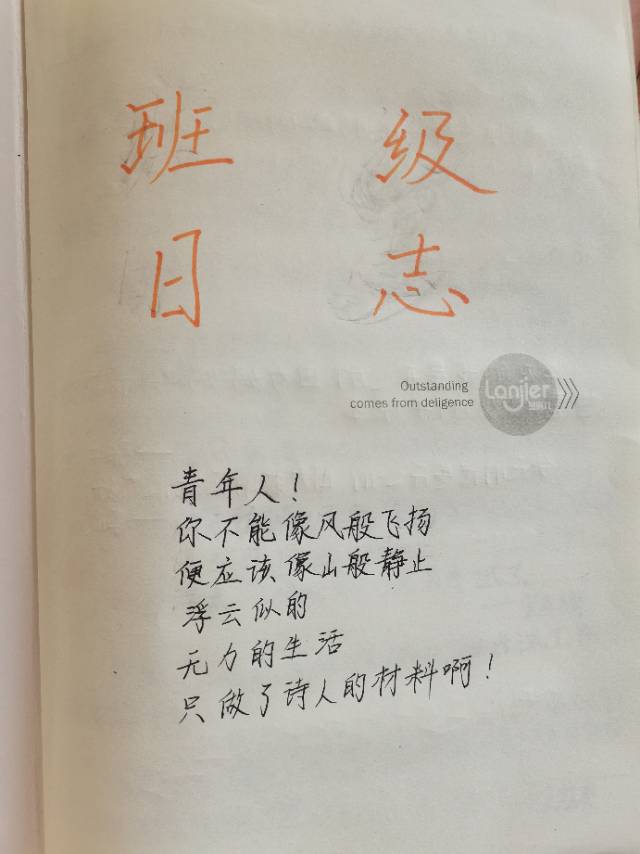 班 级
日 志
Outstanding
comes from deligence
Lanjier
青年人!
你不能像风般飞扬
便应该像山般静止
浮云似的
无力的生活
只做了诗人的材料啊!